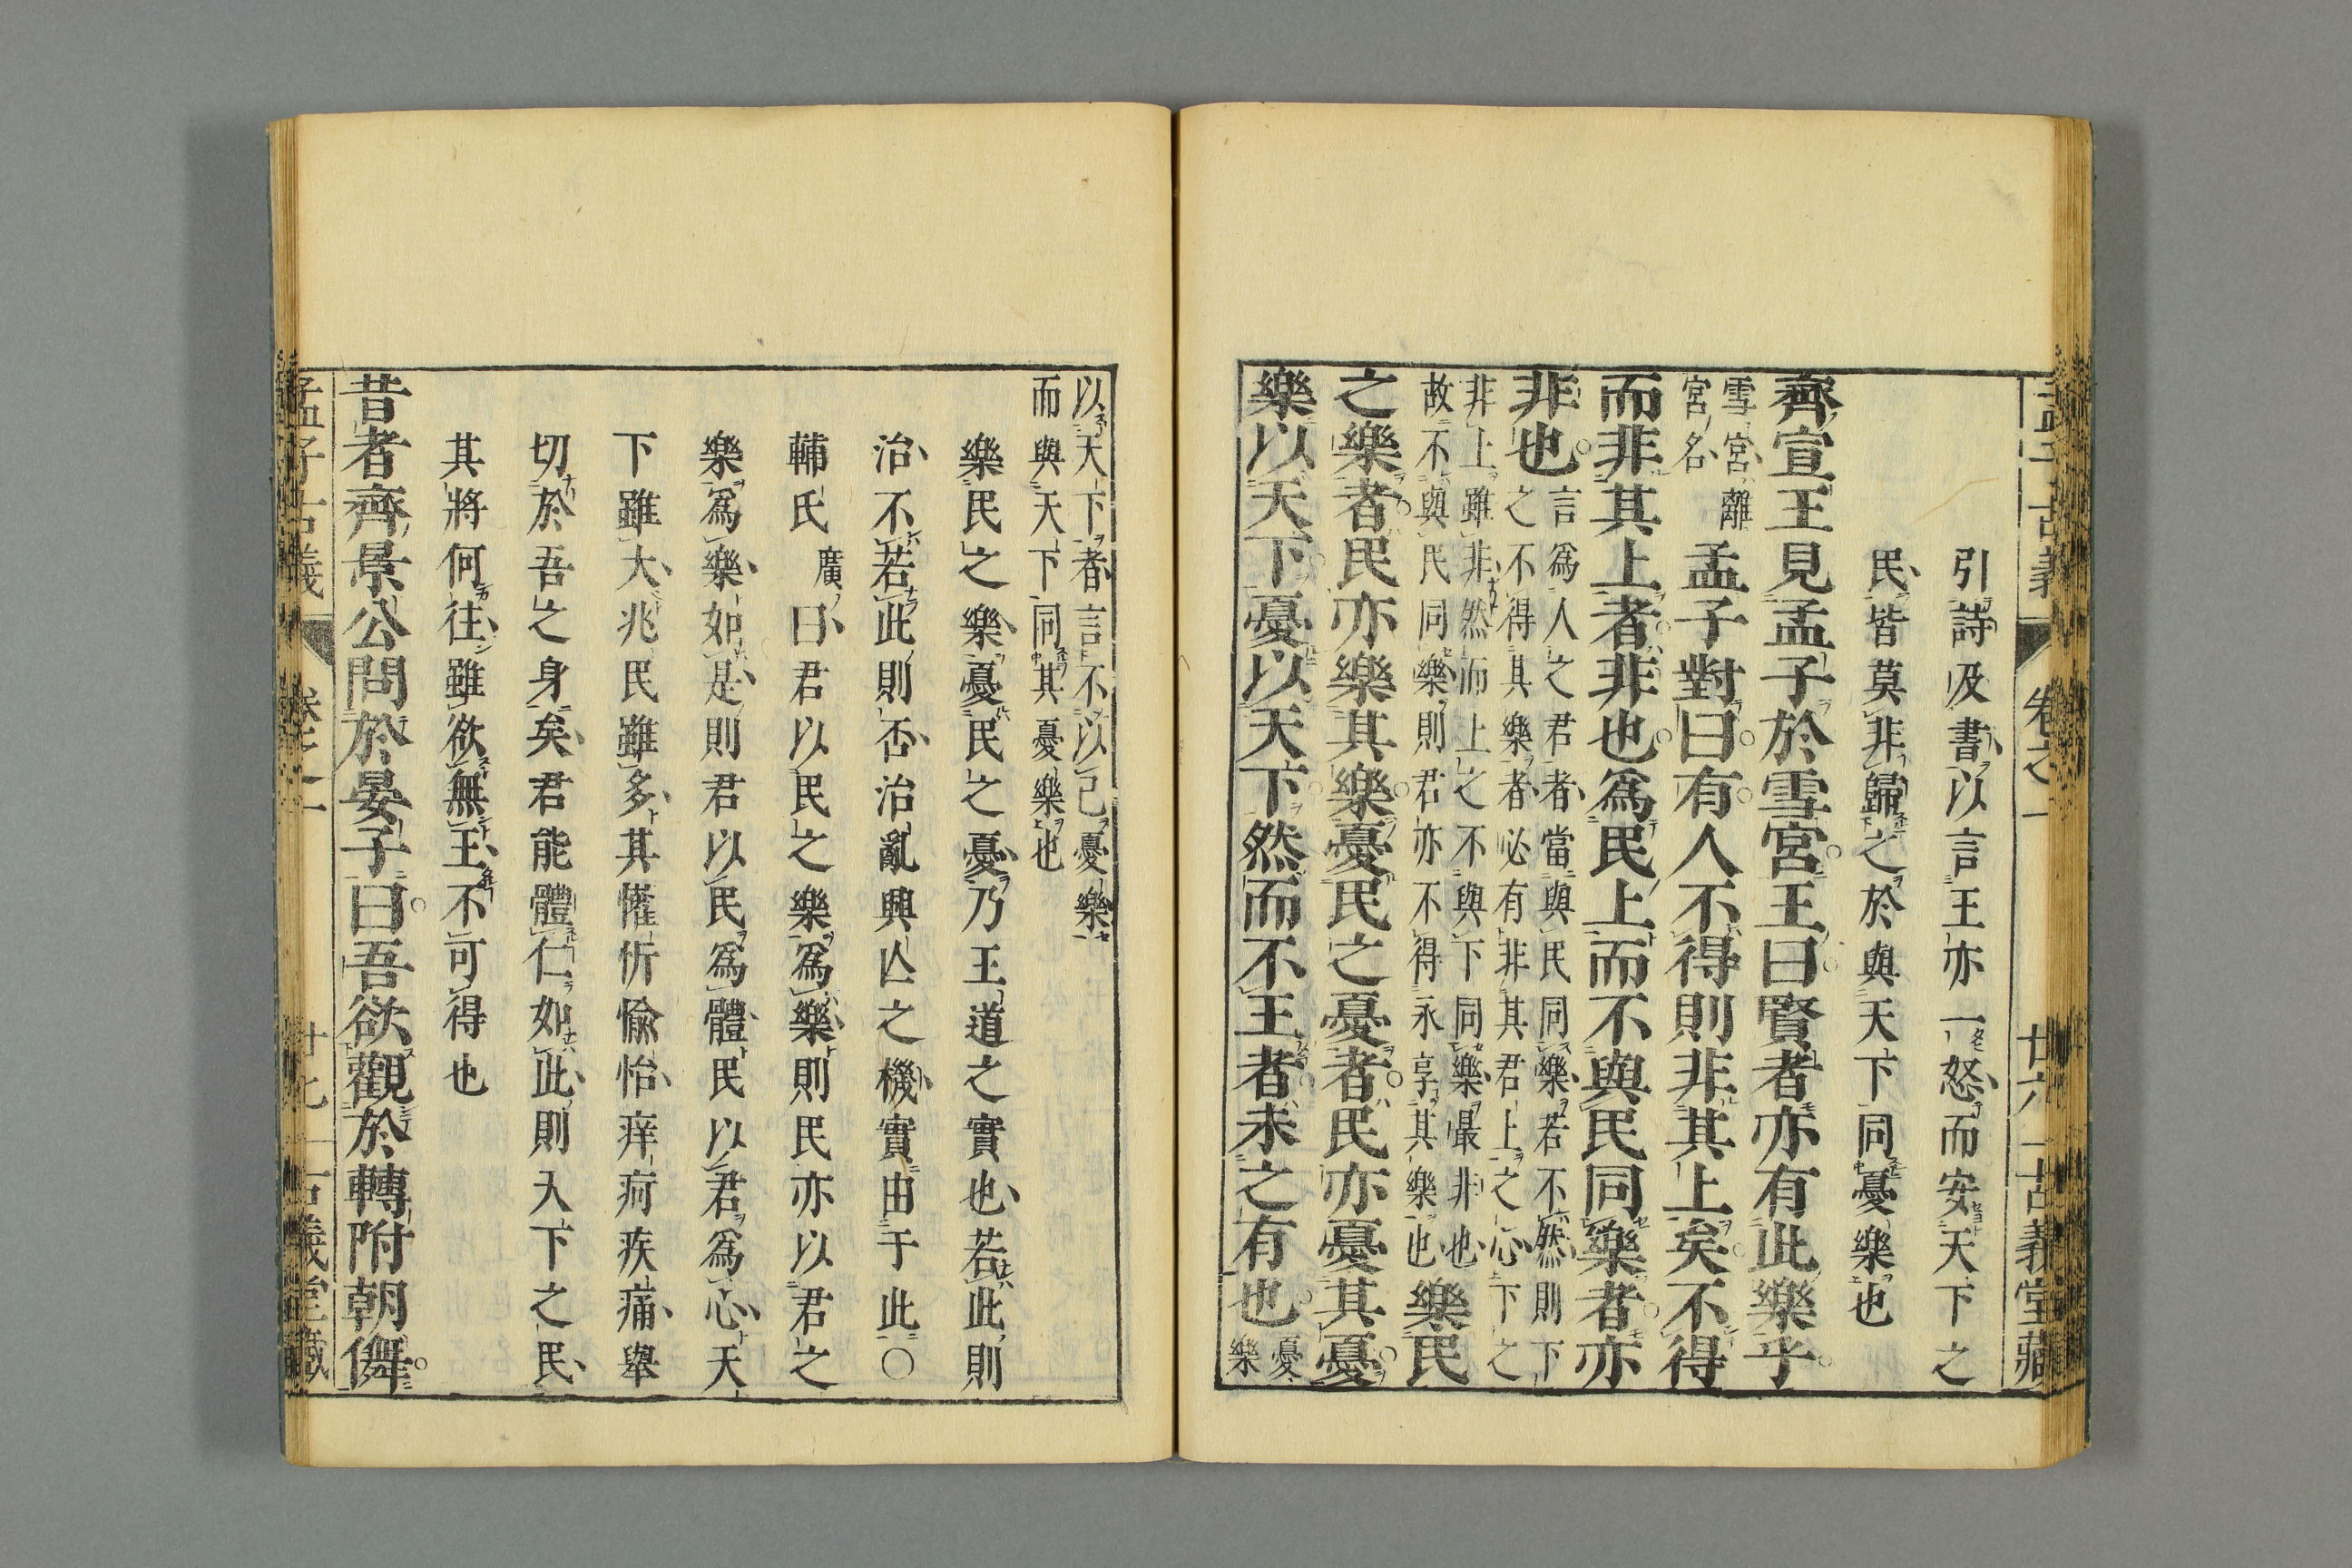 孟子古義 卷之一 廿六 古義堂藏
引詩及書以言王亦一怒而安天下之
民皆莫非歸之於與天下同憂樂也
齊宣王見孟子於雪宮王曰賢者亦有此樂乎
雪宮離宮名孟子對曰有人不得則非其上矣不得
而非其上者非也爲民上而不與民同樂者亦
非也言爲人之君者當與民同樂若不然則下之不得其樂者必有非其君上之心下之
非上雖非然而上之不與下同樂最非也故不與民同樂則君亦不得永享其樂也樂民
之樂者民亦樂其樂憂民之憂者民亦憂其憂
樂以天下憂以天下然而不王者未之有也憂樂
以天下者言不以己憂樂而與天下同其憂樂也
樂民之樂憂民之憂乃王道之實也若此則
治不若此則否治亂興亾之機實由于此〇
輔氏廣曰君以民之樂爲樂則民亦以君之
樂爲樂如是則君以民爲體民以君爲心天
下雖大兆民雖多其懽忻愉怡痒疴疾痛舉
切於吾之身矣君能體仁如此則天下之民
其將何往雖欲無王不可得也
昔者齊景公問於晏子曰吾欲觀於轉附朝儛
孟子古義 卷之一 廿七 古義堂藏